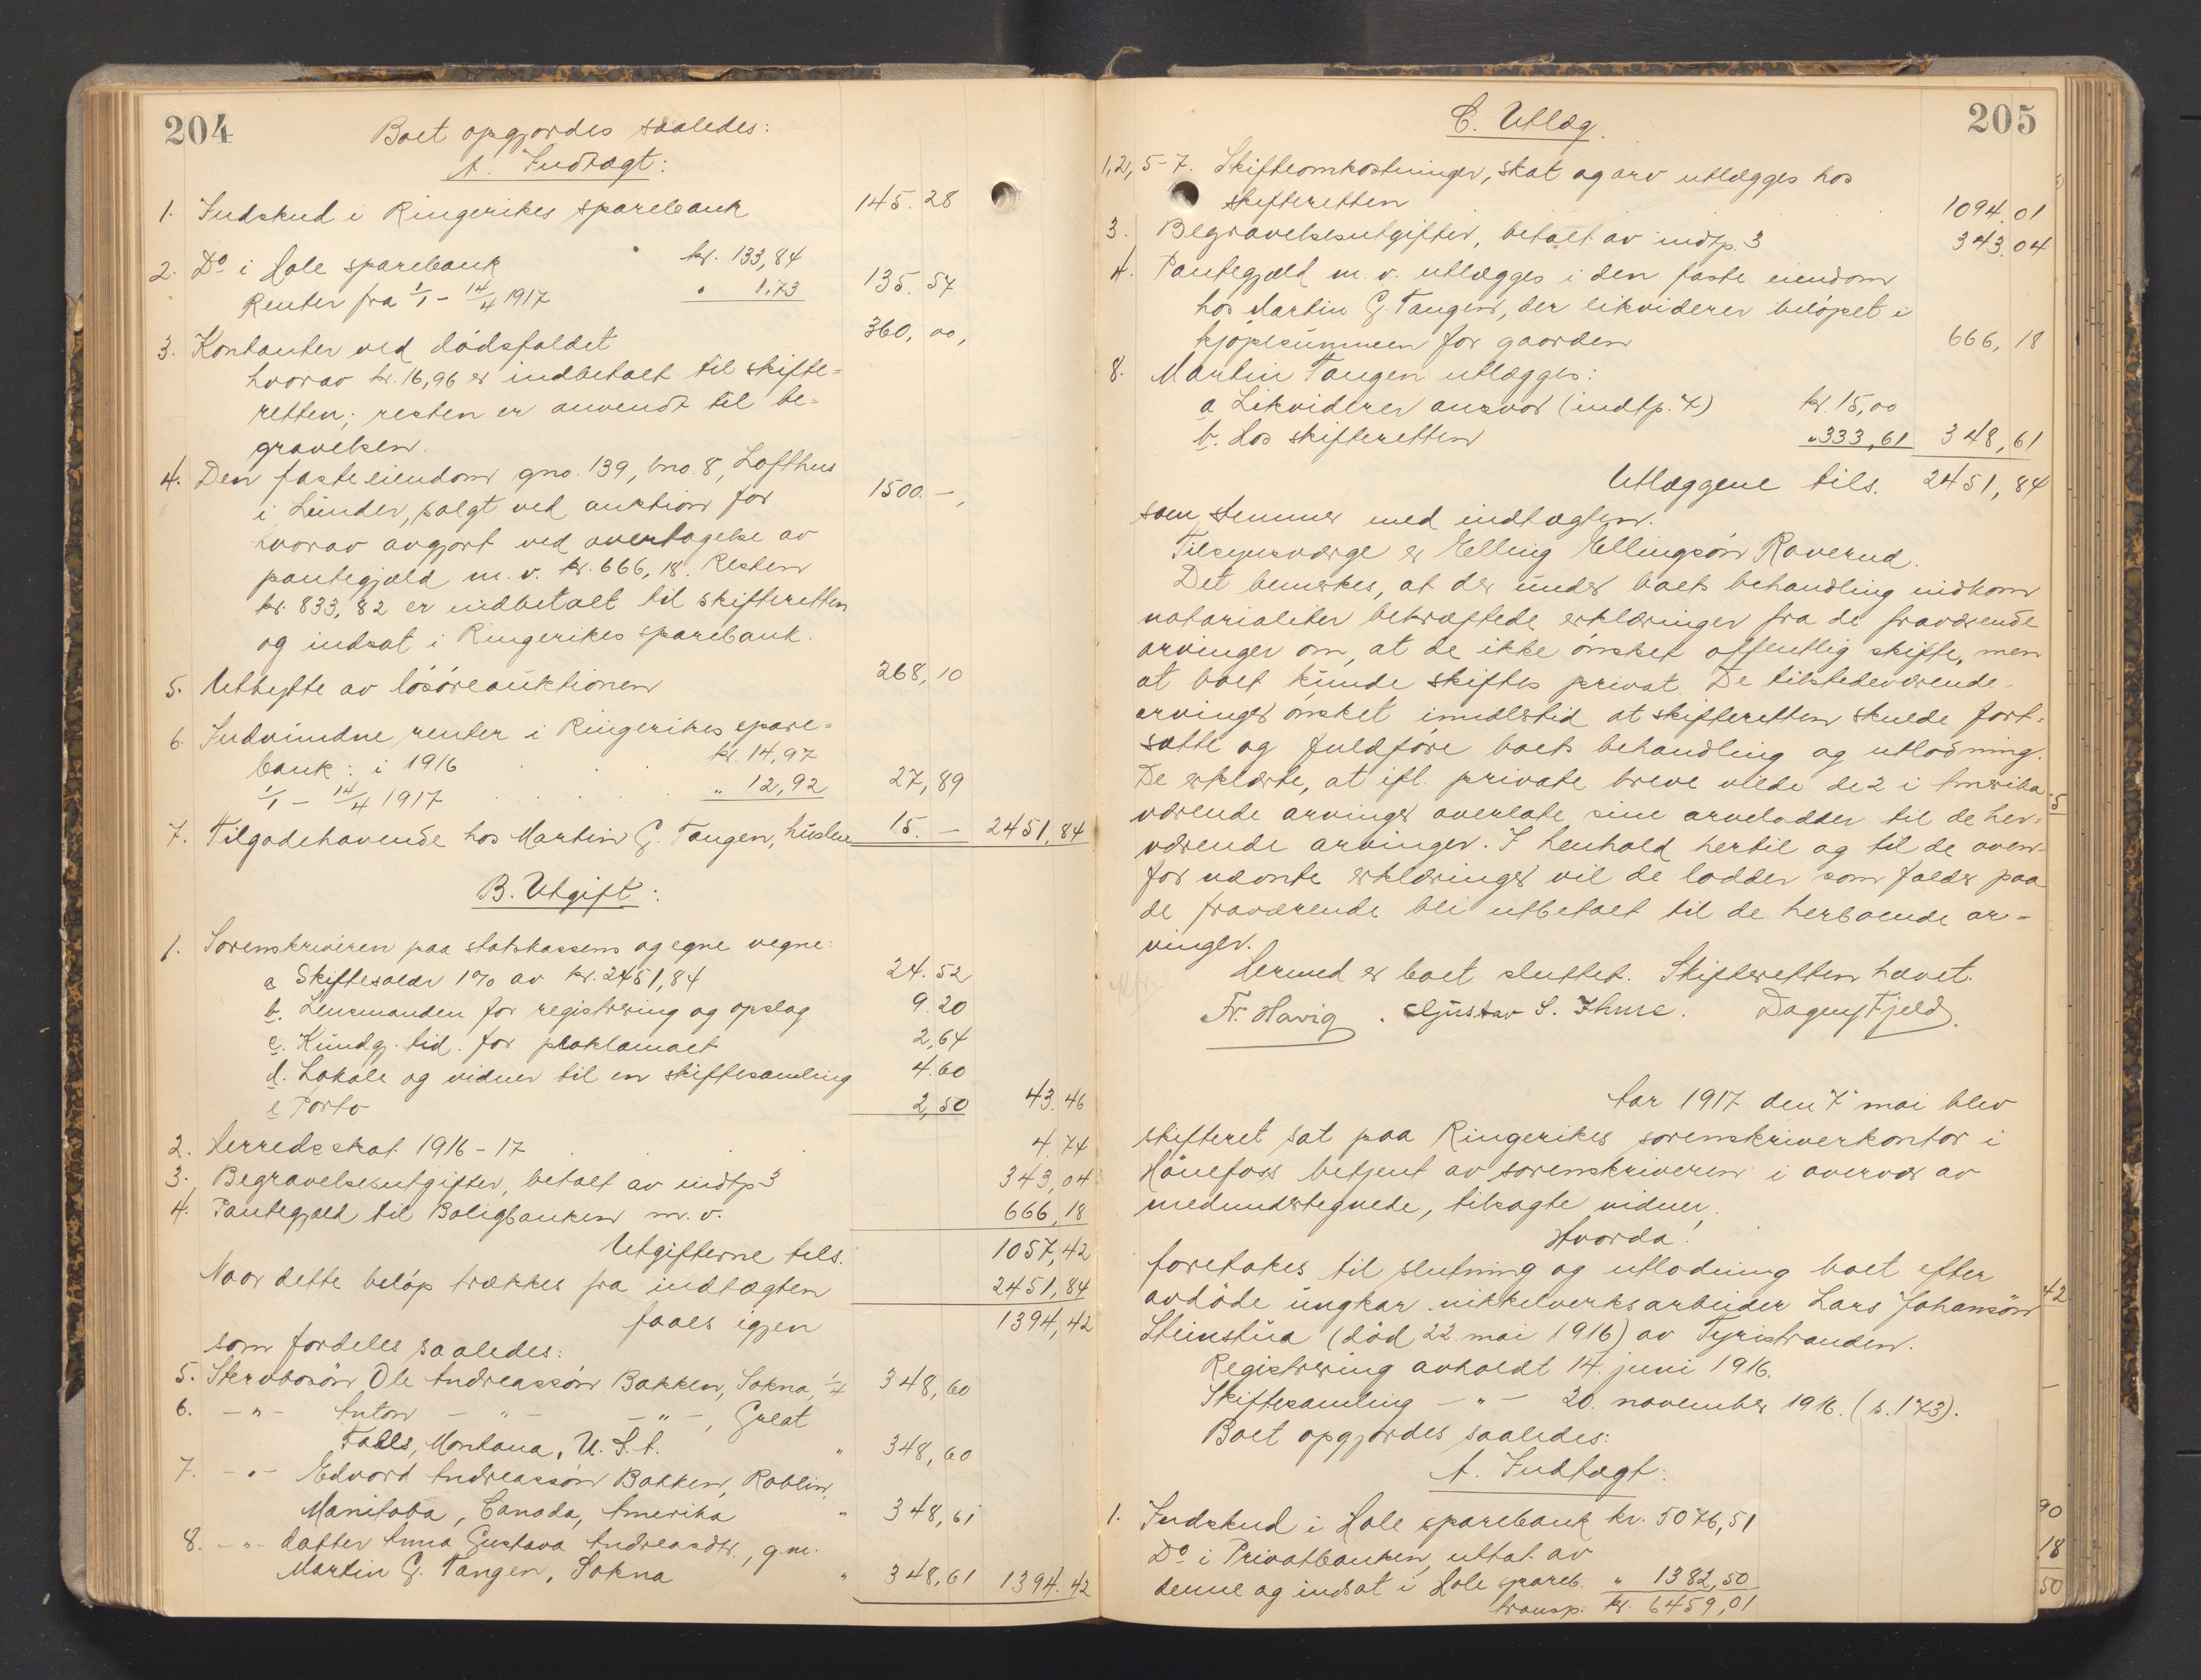 204
Boet opgjordes saaledes:
A. Indtægt:
1. Indskud i Ringerikes sparebank 145.28
2. Do i Hole sparebank kr. 133,84
Renter fra 1/1 - 14/4 1917 " 1.73 135.57
3. Kontanter ved dødsfaldet 360,00,
hvorav kr. 16,96 er indbetalt til skifte=
retten; resten er anvendt til be=
gravelsen.
4. Den faste eiendom gno. 139, bno. 8, Lofthus
i Lunder, solgt ved auktion for 1500.-,
hvorav avgjort ved overtagelse av
pantegjæld m.v. kr. 666,18. Resten
kr. 833,82 er indbetalt til skifteretten
og indsat i Ringerikes sparebank.
5. Utbytte av løsøreauktionen 268,10
6. Indvundne renter i Ringerikes spare=
bank: i 1916 . . . kr. 14,97
1/1 - 14/4 1917 . . . . " 12,92 27,89
7. Tilgodehavende hos Martin G. Tangen, 15.- 2451,84
B. Utgift:
1. Sorenskriveren paa statskassens og egne vegne:
a Skiftesalær 1% av kr. 2451,84 24.52
b. Lensmanden for registrering og opslag 9.20
c. Kundgj. tid. for proklamaet 2,64
d. Lokale og vidner til en skiftesamling 4.60
e Porto 2,50 43.46
2. Herredsskat 1916-17 . . . 4.74
3. Begravelsesutgifter, betalt av indtp 3 343,04
4. Pantegjæld til Boligbanken m.v. 666,18
Utgifterne tils. 1057,42
Naar dette beløp trækkes fra indtægten 2451,84
faaes igjen 1394,42
som fordeles saaledes:
5. Stervbosøn Ole Andreassøn Bakken, Sokna, 1/4 348,60
6. -"- Anton -"- -"-, Great
Falls, Montana, U.S.A. " 348,60
7. -"- Edvard Andreassøn Bakken, Roblin,
Manitoba, Canada, Amerika " 348,61
8. -"- datter Anna Gustava Andreasdtr., g.m.
Martin G. Tangen, Sokna " 348,61 1394.42
205
C. Utlæg.
1,2,5-7. Skifteomkostninger, skat og arv utlægges hos
skifteretten . . . 1094.01
3. Begravelsesutgifter, betalt av indtp. 3 343.04
4. Pantegjæld m.v. utlægges i den faste eiendom
hos Martin G. Tangen, der likviderer beløpet i
kjøpesummen for gaarden 666,18
8. Martin Tangen utlægges:
a Likviderer ansvar (indtp. 7) kr. 15,00
b. Hos skifteretten " 333,61 348,61
Utlæggene tils. 2451,84
som stemmer med indtægten.
Tilsynsværge er Elling Ellingsøn Raverud.
Det bemerkes, at der under boets behandling indkom
notarialiter bekræftede erklæringer fra de fraværende
arvinger om, at de ikke ønsket offentlig skifte, men
at boet kunde skiftes privat. De tilstedeværende
arvinger ønsket imidlertid at skifteretten skulde fort=
sætte og fuldføre boets behandling og utlodning.
De erklærte, at ifl. private breve vilde de 2 i Amerika
værende arvinger overlate sine arvelodder til de her=
værende arvinger. I henhold hertil og til de oven=
for nævnte erklæringer vil de lodder som falder paa
de fraværende bli utbetalt til de herboende ar=
vinger.
Hermed er boet sluttet. Skifteretten hævet.
Fr. Havig. Gustav S. Ihme. Dagny Fjeld.
Aar 1917 den 7 mai blev
skifteret sat paa Ringerikes sorenskriverkontor i
Hønefoss betjent av sorenskriveren i overvær av
medundertegnede, tilsagte vidner.
Hvorda!
foretokes til slutning og utlodning boet efter
avdøde ungkar nikkelverksarbeider Lars Johansøn
Steinstua (død 22. mai 1916) av Tyristranden.
Registrering avholdt 14. juni 1916.
Skiftesamling -"- 20. november 1916. (s. 173).
Boet opgjordes saaledes:
A. Indtægt:
1. Indskud i Hole sparebank kr. 5076,51
Do i Privatbanken, uttat av
denne og indsat i Hole spareb. " 1382,50
transp. kr. 6459,01
5
42
90
18
50